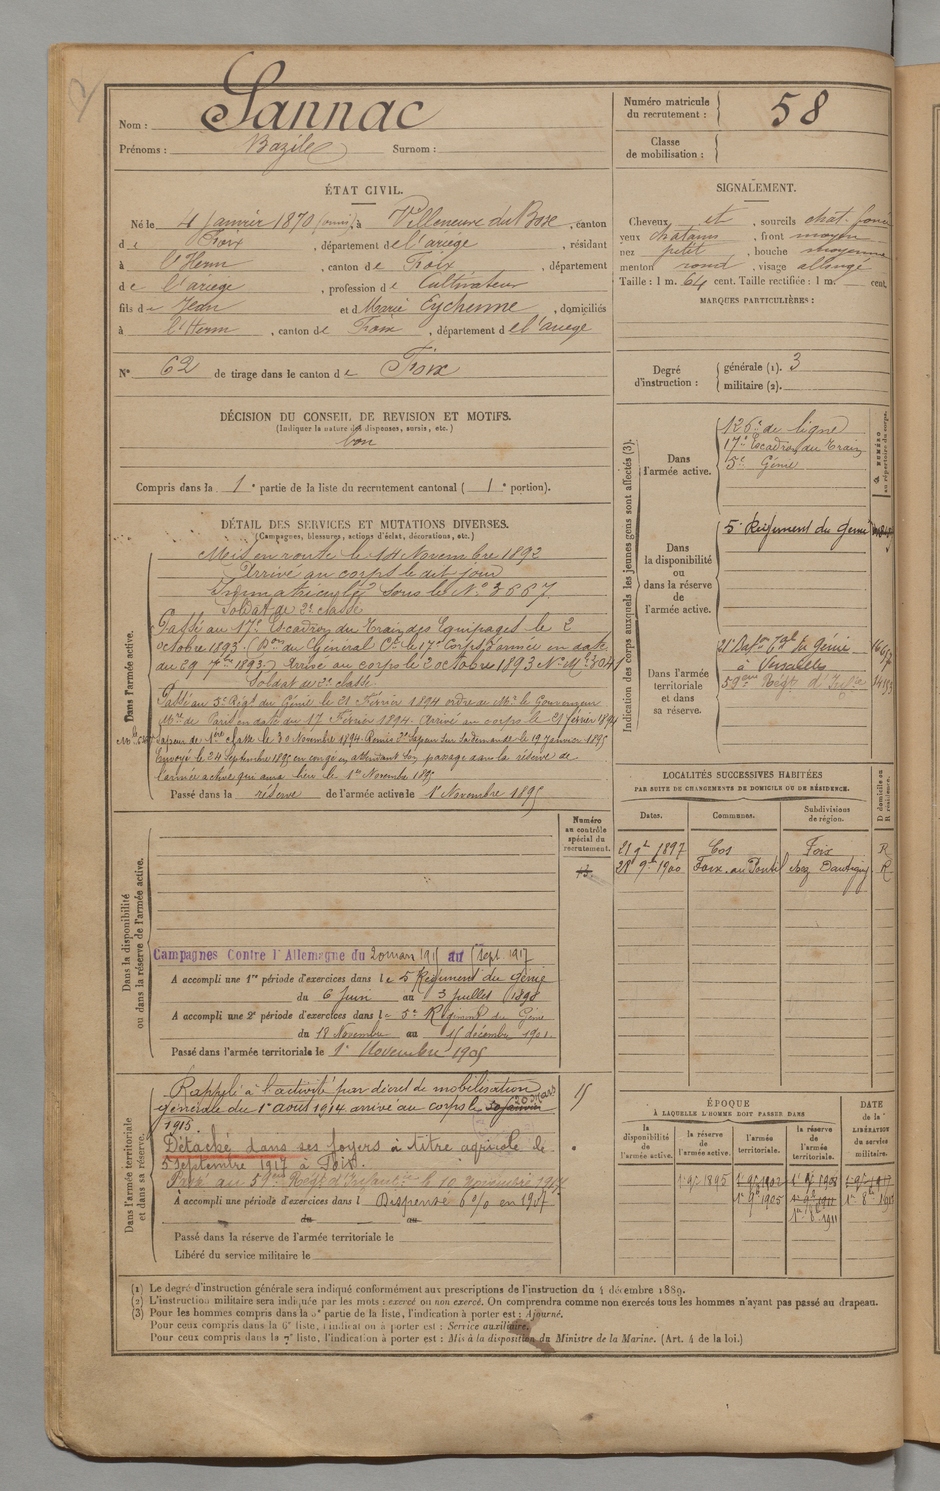 Nom : Sannac
Prénoms : Bazile Surnom :
Numéro matricule du recrutement : 58
Classe de mobilisation :
ÉTAT CIVIL.
Né le 4 Janvier 1870 à Villeneuve du Bosc, canton
de Foix, département de l'ariège, résidant
à l'Herm, canton de Foix, département
de l'ariège, profession de Cultivateur
fils de Jean et de Marie Eychenne, domiciliés
à l'Herm, canton de Foix, département de l'ariege
N° 62 de tirage dans le canton de Foix
SIGNALEMENT.
Cheveux et, sourcils chat. foncé
yeux chatains, front moyen
nez petit, bouche moyenne
menton rond, visage allongé
Taille : 1 m. 64 cent. Taille rectifiée : 1 m. cent.
MARQUES PARTICULIÈRES :
Degré d'instruction : générale (1). 3
militaire (2).
DÉCISION DU CONSEIL DE REVISION ET MOTIFS.
(Indiquer la nature des dispenses, sursis, etc.)
bon
Compris dans la 1e partie de la liste du recrutement cantonal ( 1e portion).
DÉTAIL DES SERVICES ET MUTATIONS DIVERSES.
(Campagnes, blessures, actions d'éclat, décorations, etc.)
Dans l'armée active.
Mis en route le 14 Novembre 1892
Arrivé au corps le dit jour
Immatriculé sous le N° 3667.
Soldat de 2e classe
Passé au 17e Escadron du Train des Equipages le 2
octobre 1893 (on du Général Ct le 17e Corps d'armée en date
du 29 7bre 1893) Arrivé au corps le 2 octobre 1893 N° Mle 3041
Soldat de 2e classe.
Passé au 5e Régt du Génie le 21 Février 1894 ordre de Mr le Gouverneur
Mre de Paris en date du 17 Février 1894. Arrivé au corps le 21 février 1894
Sapeur de 1ère classe le 30 Novembre 1894. Remis 2e Sapeur sur sa demande le 19 Janvier 1895
Envoyé le 24 Septembre 1895 en congé en attendant son passage dans la réserve de
l'armée active qui aura lieu le 1er Novembre 1895
Passé dans la réserve de l'armée active le 1er Novembre 1895
Indication des corps auxquels les jeunes gens sont affectés (3).
NUMÉRO au répertoire du corps.
Dans l'armée active.
126e de ligne
17e Escadron du Train
5e Génie
Dans la disponibilité ou dans la réserve de l'armée active.
5e Régiment du Génie
Dans l'armée territoriale et dans sa réserve.
21e Baton Tal du Génie
à Versailles
59ème Régt d'Infie
LOCALITÉS SUCCESSIVES HABITÉES
PAR SUITE DE CHANGEMENTS DE DOMICILE OU DE RÉSIDENCE.
Dates. Communes. Subdivisions de région. D domicile ou R résidence.
21 9b 1897 Cos Foix R
28 9b 1900 Foix. au Pontil chez Dautigny R
Dans la disponibilité ou dans la réserve de l'armée active.
Numéro au contrôle spécial du recrutement.
Campagnes Contre l'Allemagne du 20 mars 1915 au 5 Sept. 1917
A accompli une 1re période d'exercices dans le 5 Régiment du génie
du 6 Juin au 3 juillet 1898
A accompli une 2e période d'exercices dans le 5e Régiment du Génie
du 18 Novembre au 15 décembre 1901.
Passé dans l'armée territoriale le 1er Novembre 1905
Dans l'armée territoriale et dans sa réserve.
15
Rappelé à l'activité par décret de mobilisation
générale du 1er août 1914 arrivé au corps le 30 janvier 20 Mars
1915.
Détaché dans ses foyers à titre agricole le
5 Septembre 1917 à Foix.
Passé au 59ème Régt d'Infanterie le 10 novembre 1917
A accompli une période d'exercices dans l Dispensé 6% en 1907
du au
Passé dans la réserve de l'armée territoriale le
Libéré du service militaire le
ÉPOQUE
À LAQUELLE L'HOMME DOIT PASSER DANS
la disponibilité de l'armée active. la réserve de l'armée active. l'armée territoriale. la réserve de l'armée territoriale.
DATE de la LIBÉRATION du service militaire.
1er 9b 1895 1er 9b 1902 1er 9b 1908 1er 9b 1917
1er 9b 1905 1er 9b 1911 1er 8b
1er 8b 1911
(1) Le degré d'instruction générale sera indiqué conformément aux prescriptions de l'instruction du 4 décembre 1889.
(2) L'instruction militaire sera indiquée par les mots : exercé ou non exercé. On comprendra comme non exercés tous les hommes n'ayant pas passé au drapeau.
(3) Pour les hommes compris dans la 5e partie de la liste, l'indication à porter est : Ajourné.
Pour ceux compris dans la 6e liste, l'indication à porter est : Service auxiliaire.
Pour ceux compris dans la 7e liste, l'indication à porter est : Mis à la disposition du Ministre de la Marine. (Art. 4 de la loi.)